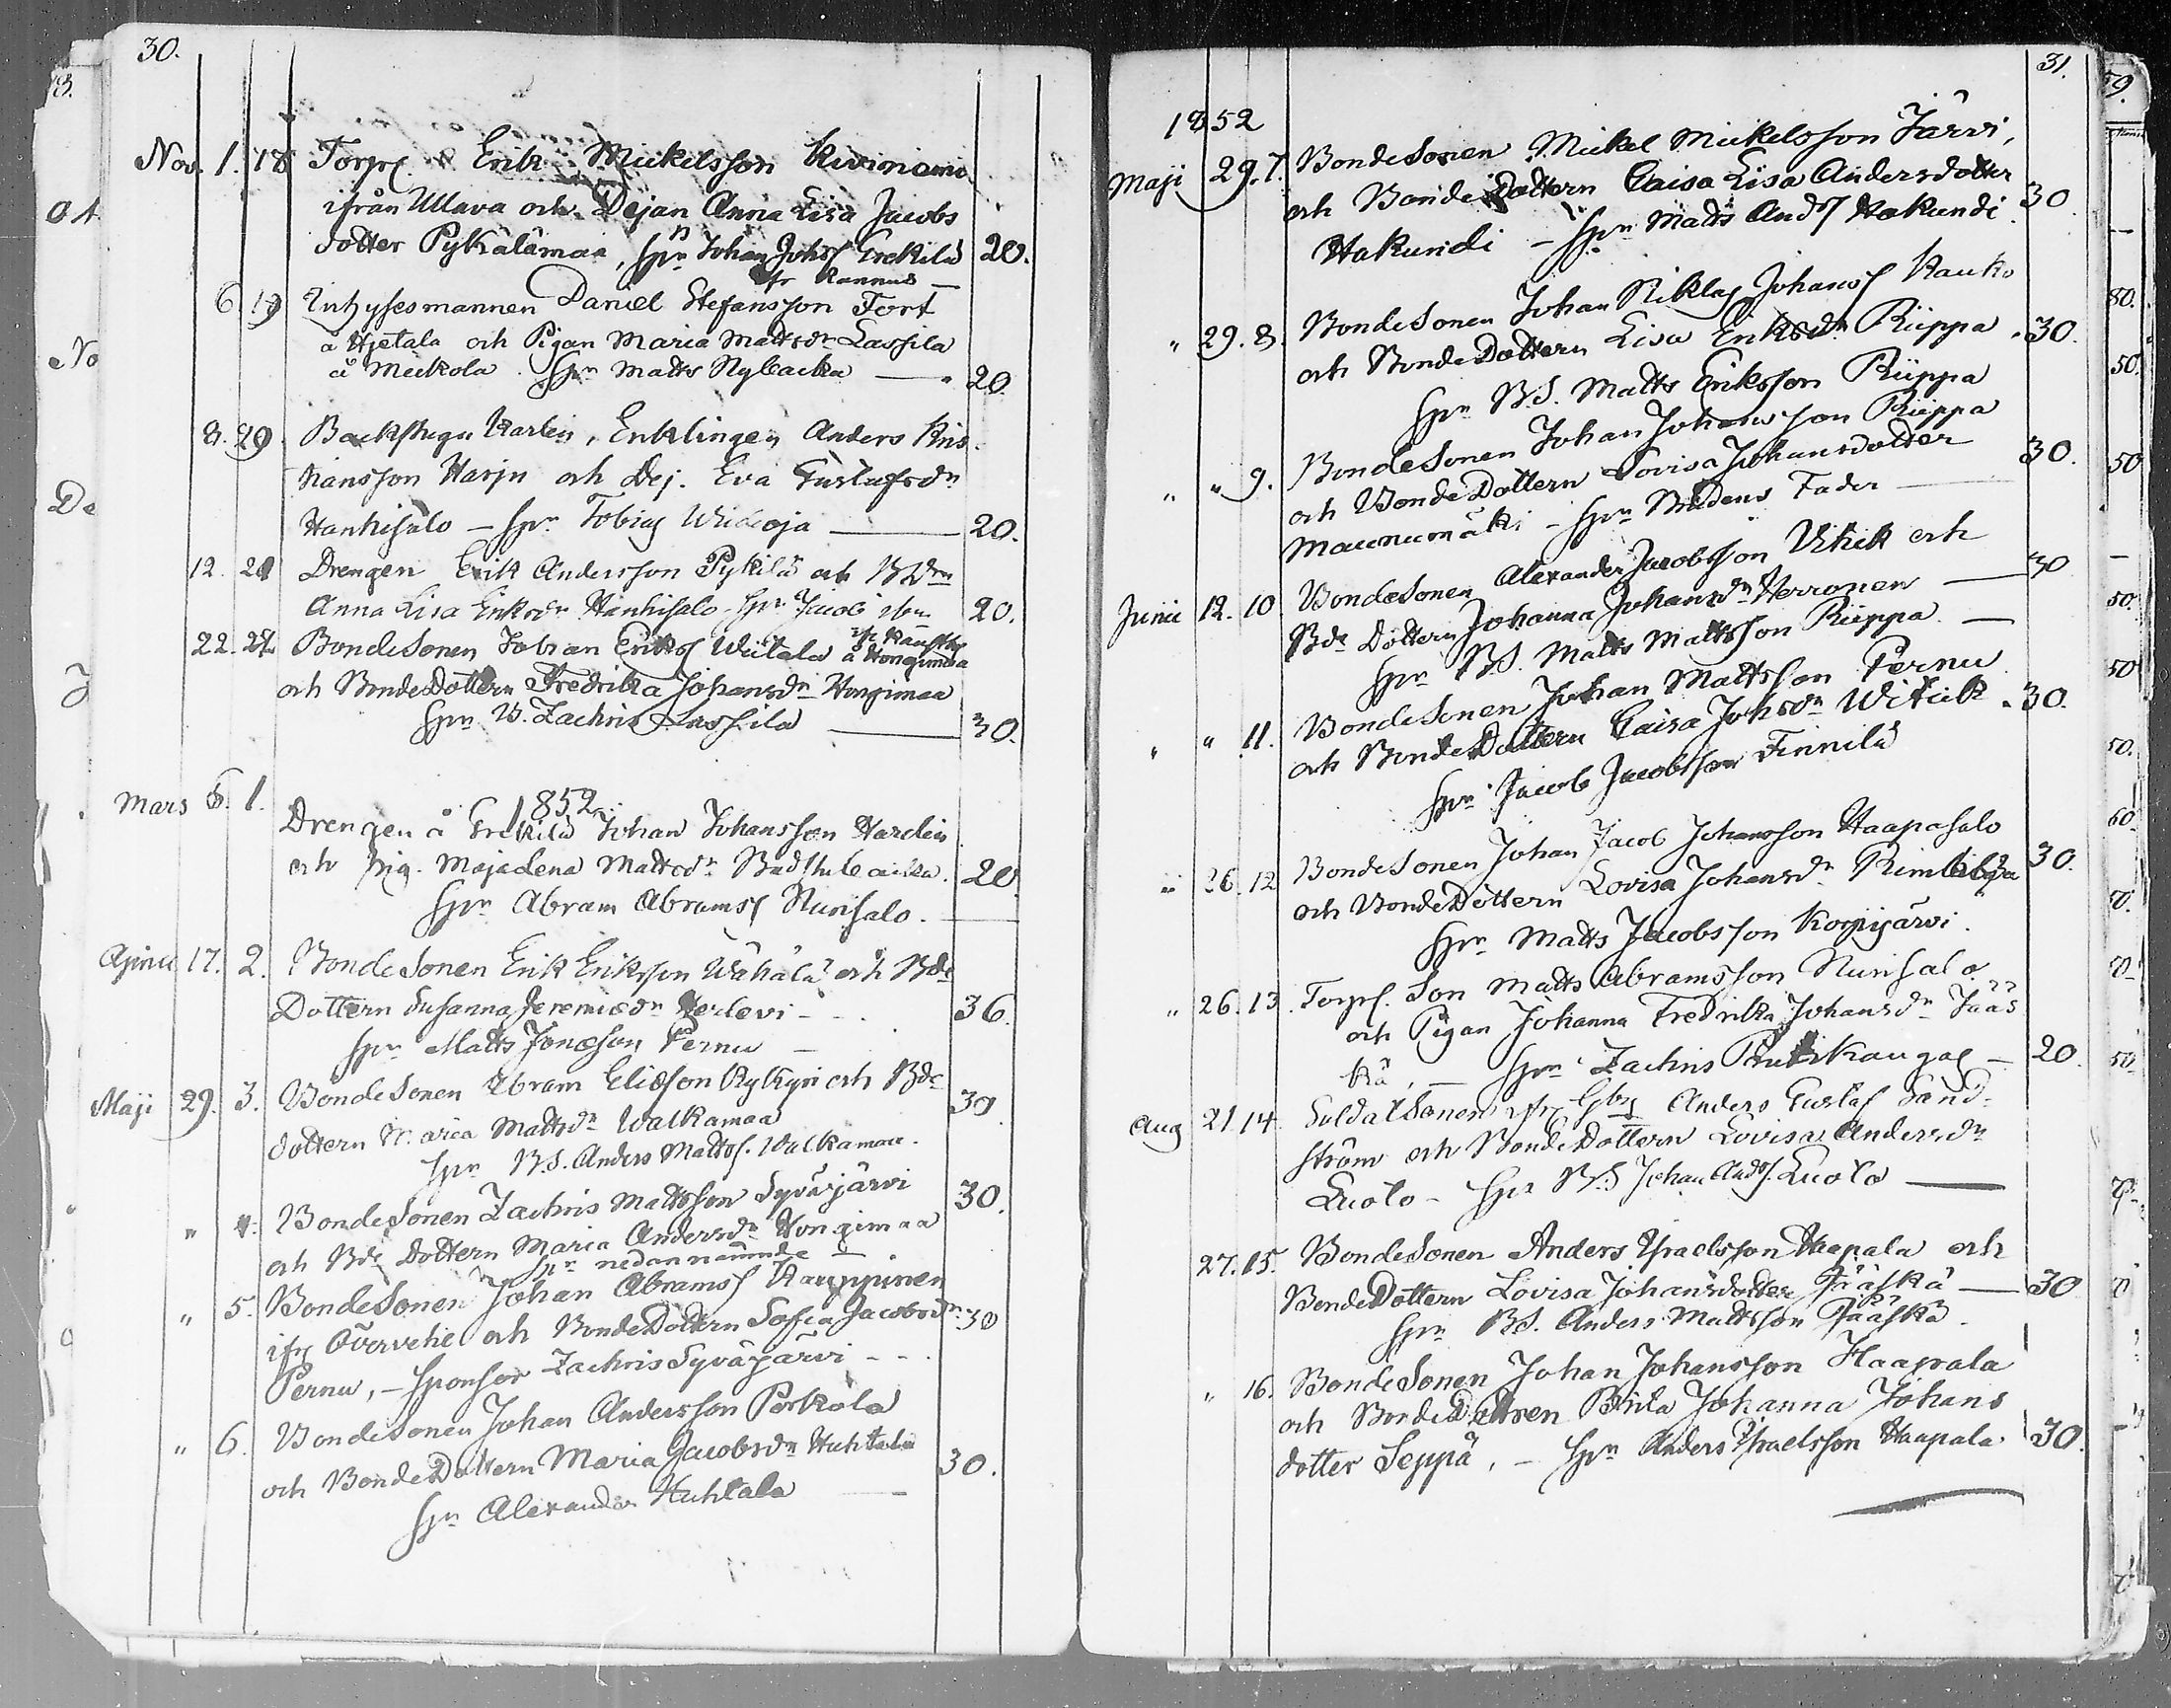 30.
Nov. 1. 18 Torp. Erik Mickelsson Kiviniemi
ifrån Ullava och Dejan Anna Lisa Jacobs
dotter Pykälämaa, Spn Johan Johss Erkilä 20.
fr Kannus —
6. 19 Inhysesmannen Daniel Stefansson Fort
å Hjetala och Pigan Maria Mattsdr Lassila
å Meckola. Spn Matts Nybacka — 20.
8. 20 Backstugu Karlen, Enklingen Anders Kris-
tiansson Harju och Dej. Eva Gustafsdr
Hanhisalo — Spn Tobias Widioja — 20.
12. 21 Drengen Erik Andersson Pykilä och BDrn
Anna Lisa Eriksdr Hanhisalo Spr Jacob 20.
22. 22 BondeSonen Erikss Wiitala å Hongimaa
och BondeDottern Fredrika Johansdr Hongimaa
Spn B. Zachris Lassila — 30.
1852
Mars 6. 1. Drengen å Erkilä Johan Johansson Hardin
och Pig. Majalena Mattsdr Badstubacka. 20
Spn Abram Abramss Nurisalo. —
17. 2. BondeSonen Erik Eriksson Wähälä och Bde
Dottern Susanna Jeremiædr Herlevi - - 36.
Spn Matts Jonæson Pernu —
Maji 29. 3. BondeSonen Abram Eliæson Kykyri och Bde
dottern Maria Mattsdr Walkamaa 30
Spn B.S. Anders Mattss. Walkamaa.
" 4. BondeSonen Zachris Mattsson Syväjärvi 30.
och Bde Dottern Maria Andersdr Hongimaa
Spn nedannämnde —
" 5. BondeSonen Johan Abramss Kauppinen
ifr Öfvervetil och BondeDottern Sofia Jacobsdr 30
Pernu, — Sponsor Zachris Syväjärvi - - .
" 6. BondeSonen Johan Andersson Porkola
och BondeDottern Maria Jacobsdr Huhtala 30.
Spn Alexander Huhtala —
31.
1852
Maji 29. 7. BondeSonen Mickel Mickelsson Järvi,
och BondeDottern Caisa Lisa Andersdotter 30
Hakundi — Spn Matts Andss Hakundi.
" 29. 8. BondeSonen Johan Niklas Johanss Kauko
och BondeDottern Lisa Eriksdr Riippa 30.
Spn B.S. Matts Eriksson Riippa
" " 9. BondeSonen Johan Johansson Riippa
och BondeDottern Lovisa Johansdotter 30.
Maunumäki — Spn Brudens Fader —
Junii 12. 10 BondeSonen Alexander Jacobsson Vitick och
Bde Dottern Johanna Johansdr Herronen — 30
Spn B.S. Matts Mattsson Riippa —
" " 11. BondeSonen Johan Mattsson Pernu
och BondeDottern Caisa Johsdr Witick 30.
Spn Jacob Jacobsson Finnilä
" 26. 12 BondeSonen Johan Jacob Johansson Haapasalo
och BondeDottern Lovisa Johansdr 30.
Spn Matts Jacobsson Korpijärvi.
" 26. 13. Torps. Son Matts Abramsson Nurisalo
och Pigan Johanna Fredrika Johansdr Jääs
kä, — Spn Zachris — 20.
Aug 21. 14. SoldatSonen ifr Gby Anders Gustaf Sand-
ström och BondeDottern Lovisa Andersdr
Luoto — Spn B.S Johan Andss. Luoto —
27. 15. BondeSonen Anders Israelsson Haapala och
BondeDottern Lovisa Johansdotter Jääskä — 30
Spn B.S. Anders Mattsson Jääskä.
" 16. BondeSonen Johan Johansson Haapala
och BondeDottren Brita Johanna Johans
dotter Seppä, — Spn Anders Israelsson Haapala 30.